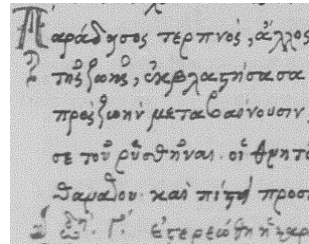 Παράδεισος τερπνὸς, ἄλλος
τῆς ζωῆς, ἐκβλαστήσασα
πρὸς ζωὴν μεταβαίνουσιν
σε τοῦ ρυσθῆναι. οἱ
καὶ προσ
ᾠδὴ. Γ΄. Ἐστερεώθη ἡ καρ